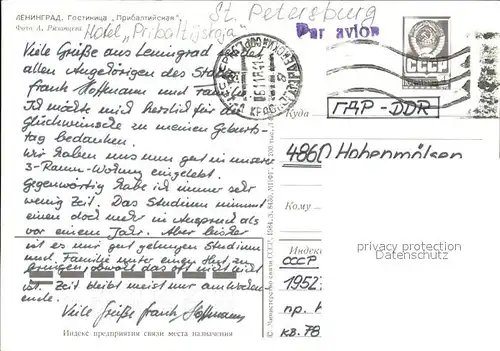 ЛЕНИНГРАД. Гостиница „Прибалтийская"
Фото А. Рязанцева
Hotel „Pribaltijskaja"
St. Petersburg
Par avion
Viele Grüße aus Leningrad
allen Angehörigen des
Frank Hoffmann und
Ich möchte mich herzlich für die
Glückwünsche zu meinem Geburts-
tag bedanken.
Wir haben uns nun gut in unsere
3-Raum-Wohnung eingelebt.
Gegenwärtig habe ich immer sehr
wenig Zeit. Das Studium nimmt
einen doch mehr in Anspruch als
vor einem Jahr. Aber bisher
ist es mir gut gelungen Studium
und Familie unter einen Hut zu
bringen, obwohl das oft nicht leicht
ist. Zeit bleibt meist nur am Wochen-
ende.
Viele Grüße Frank Hoffmann
Индекс предприятия связи места назначения
© Министерство связи СССР, 1984.
СССР
Куда
ГДР-DDR
4860 Hohenmölsen
Кому
privacy protection
Datenschutz
Индекс
СССР
1952
пр.
кв. 78